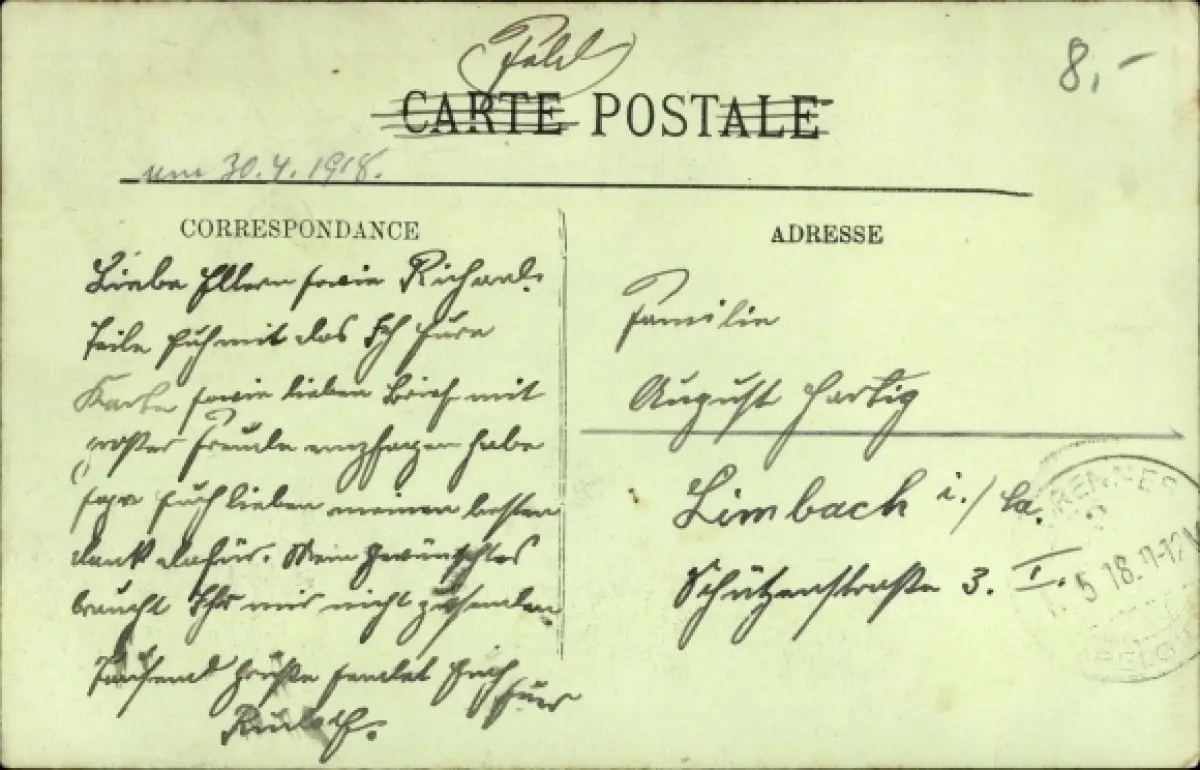 Feld
8,-
CARTE POSTALE
am 30.4.1918.
CORRESPONDANCE
Liebe Eltern sowie Richard.
Teile Euch mit das Ich Eure
Karte sowie lieben Brief mit
großer Freude habe
sage Euch lieben meinen besten
dank dafür. Mein gewünschtes
braucht Ihr mir nicht zusenden.
Tausend Grüße sendet Euch
Euer
Rudolf.
ADRESSE
Familie
August Hartig
Limbach i./Sa.
Schützenstraße 3. I.
RENNES
5 18. 11-12